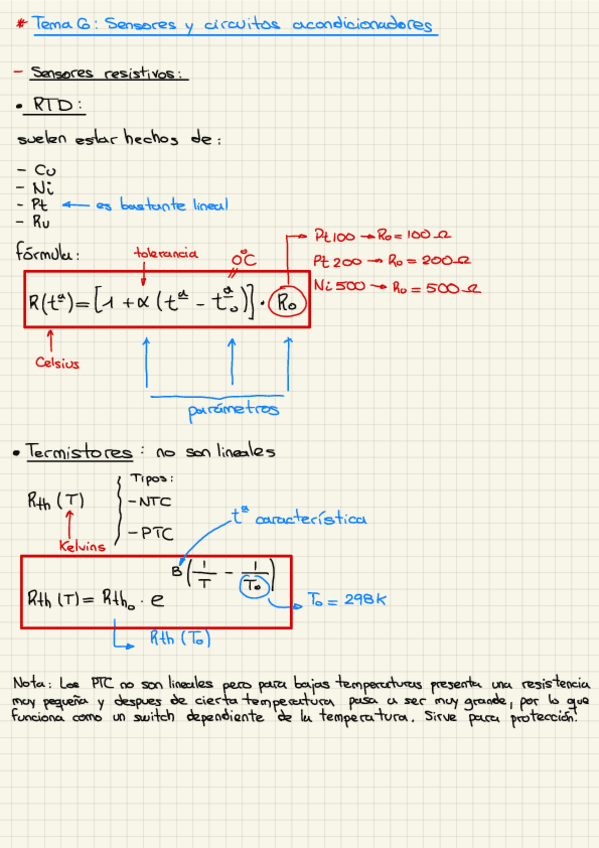 * Tema 6: Sensores y circuitos acondicionadores
- Sensores resistivos:
• RTD:
suelen estar hechos de:
- Cu
- Ni
- Pt ← es bastante lineal
- Ru
fórmula:
tolerancia
0°C
Pt100 → R₀ = 100 Ω
Pt200 → R₀ = 200 Ω
Ni500 → R₀ = 500 Ω
R(tª) = [1 + α (tª - tª₀)] · R₀
Celsius
parámetros
• Termistores: no son lineales
Rth (T)
Kelvins
Tipos:
- NTC
- PTC
tª característica
Rth (T) = Rth₀ · e^B(1/T - 1/T₀)
T₀ = 298K
Rth (T₀)
Nota: Los PTC no son lineales pero para bajas temperaturas presenta una resistencia
muy pequeña y despues de cierta temperatura pasa a ser muy grande, por lo que
funciona como un switch dependiente de la temperatura. Sirve para protección.